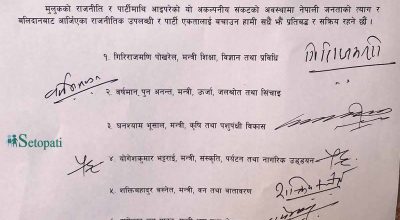 मुलुकको राजनीति र पार्टीमाथि आइपरेको यो अकल्पनीय संकटको अवस्थामा नेपाली जनताको त्याग र
बलिदानबाट आर्जिएका राजनीतिक उपलब्धी र पार्टी एकतालाई बचाउन हामी सधैं भौ प्रतिबद्ध र सक्रिय रहने छौं ।
१. गिरिराजमणि पोखरेल, मन्त्री शिक्षा, विज्ञान तथा प्रविधि
२. वर्षमान पुन अनन्त, मन्त्री, ऊर्जा, जलश्रोत तथा सिंचाइ
३. घनश्याम भूसाल, मन्त्री, कृषि तथा पशुपंक्षी विकास
Setopati
४. योगेशकुमार भट्टराई, मन्त्री, संस्कृति, पर्यटन तथा नागरिक उड्डयन
५. शक्तिबहादुर बस्नेत, मन्त्री, वन तथा वातावरण